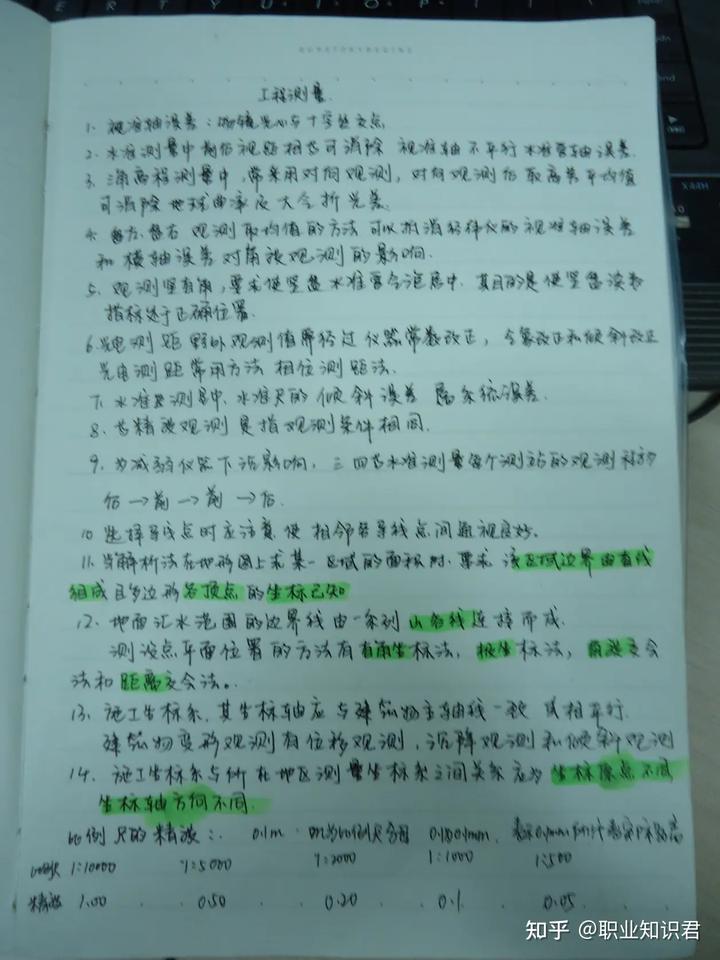 工程测量
1. 视准轴误差：物镜光心与十字丝交点
2. 水准测量中前后视距相等可消除 视准轴不平行水准管轴误差.
3. 三角高程测量中，常采用对向观测，对向观测后取高差平均值
可消除地球曲率及大气折光差.
4. 盘左、盘右 观测取均值的方法可以抵消经纬仪的视准轴误差
和横轴误差对角度观测的影响.
5. 观测竖直角，要求使竖盘水准管气泡居中. 其目的是使竖盘读数
指标处于正确位置.
6. 光电测距野外观测值需经过仪器常数改正，气象改正和倾斜改正
光电测距常用方法 相位测距法.
7. 水准测量中，水准尺的倾斜误差 属系统误差.
8. 等精度观测是指观测条件相同.
9. 为减弱仪器下沉影响，三四等水准测量每个测站的观测 为
后→前→前→后.
10 选择导线点时应注意使相邻导线点间通视良好.
11. 当解析法在地形图上求某一区域的面积时，要求 该区域边界由直线
组成且多边形各顶点的坐标已知
12. 地面汇水范围的边界线由一系列山脊线连接而成.
测设点平面位置的方法有直角坐标法，极坐标法，角度交会
法和距离交会法。.
13. 施工坐标系，其坐标轴应与建筑物主轴线一致或相平行.
建筑物变形观测有位移观测，沉降观测和倾斜观测
14. 施工坐标系与所在地区测量坐标系之间关系应为坐标原点不同
坐标轴方向不同.
比例尺的精度：. 0.1m 比例尺 0.1mm
比例尺 1:10000 1:5000 1:2000 1:1000 1:500
精度 1.00 0.50 0.20 0.1 0.05
知乎 @职业知识君